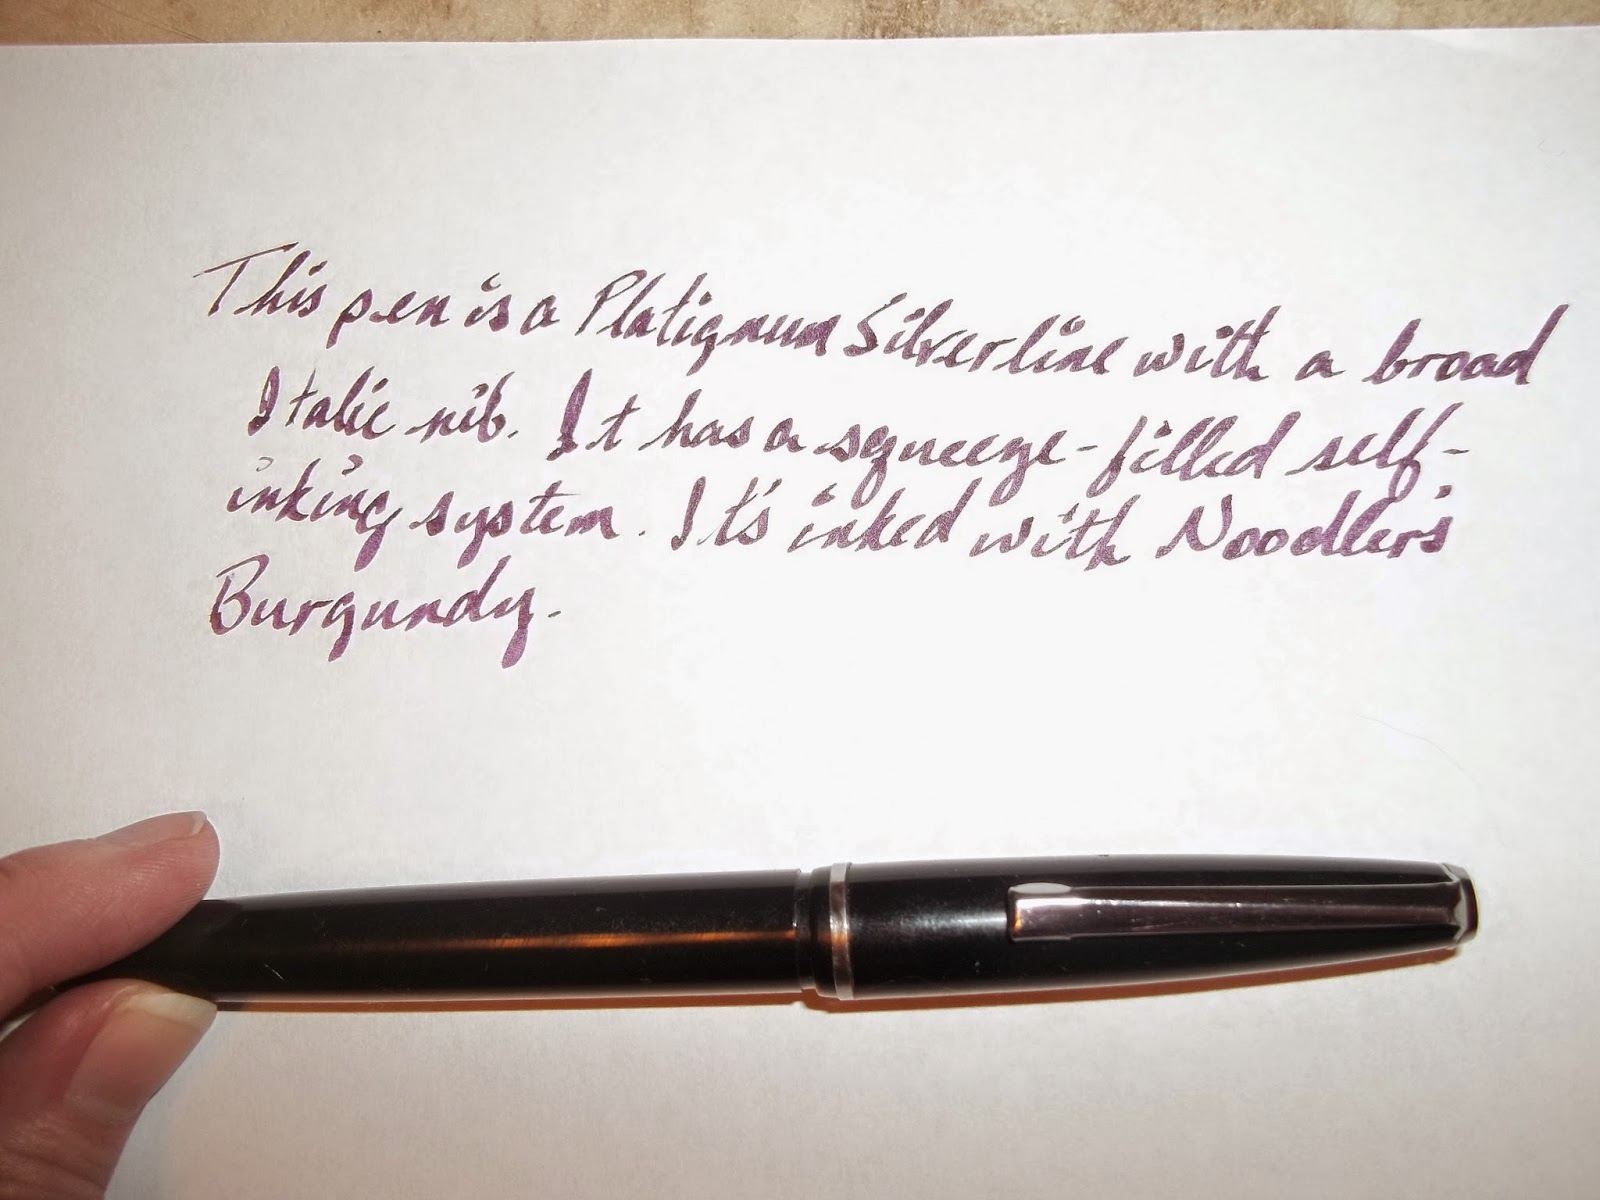 This pen is a Platignum Silverline with a broad
Italic nib. It has a squeeze-filled self-
inking system. It's inked with Noodler's
Burgundy.